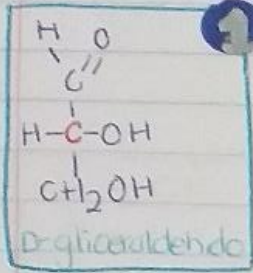 1
H O
C
H-C-OH
CH2OH
D-gliceraldehido